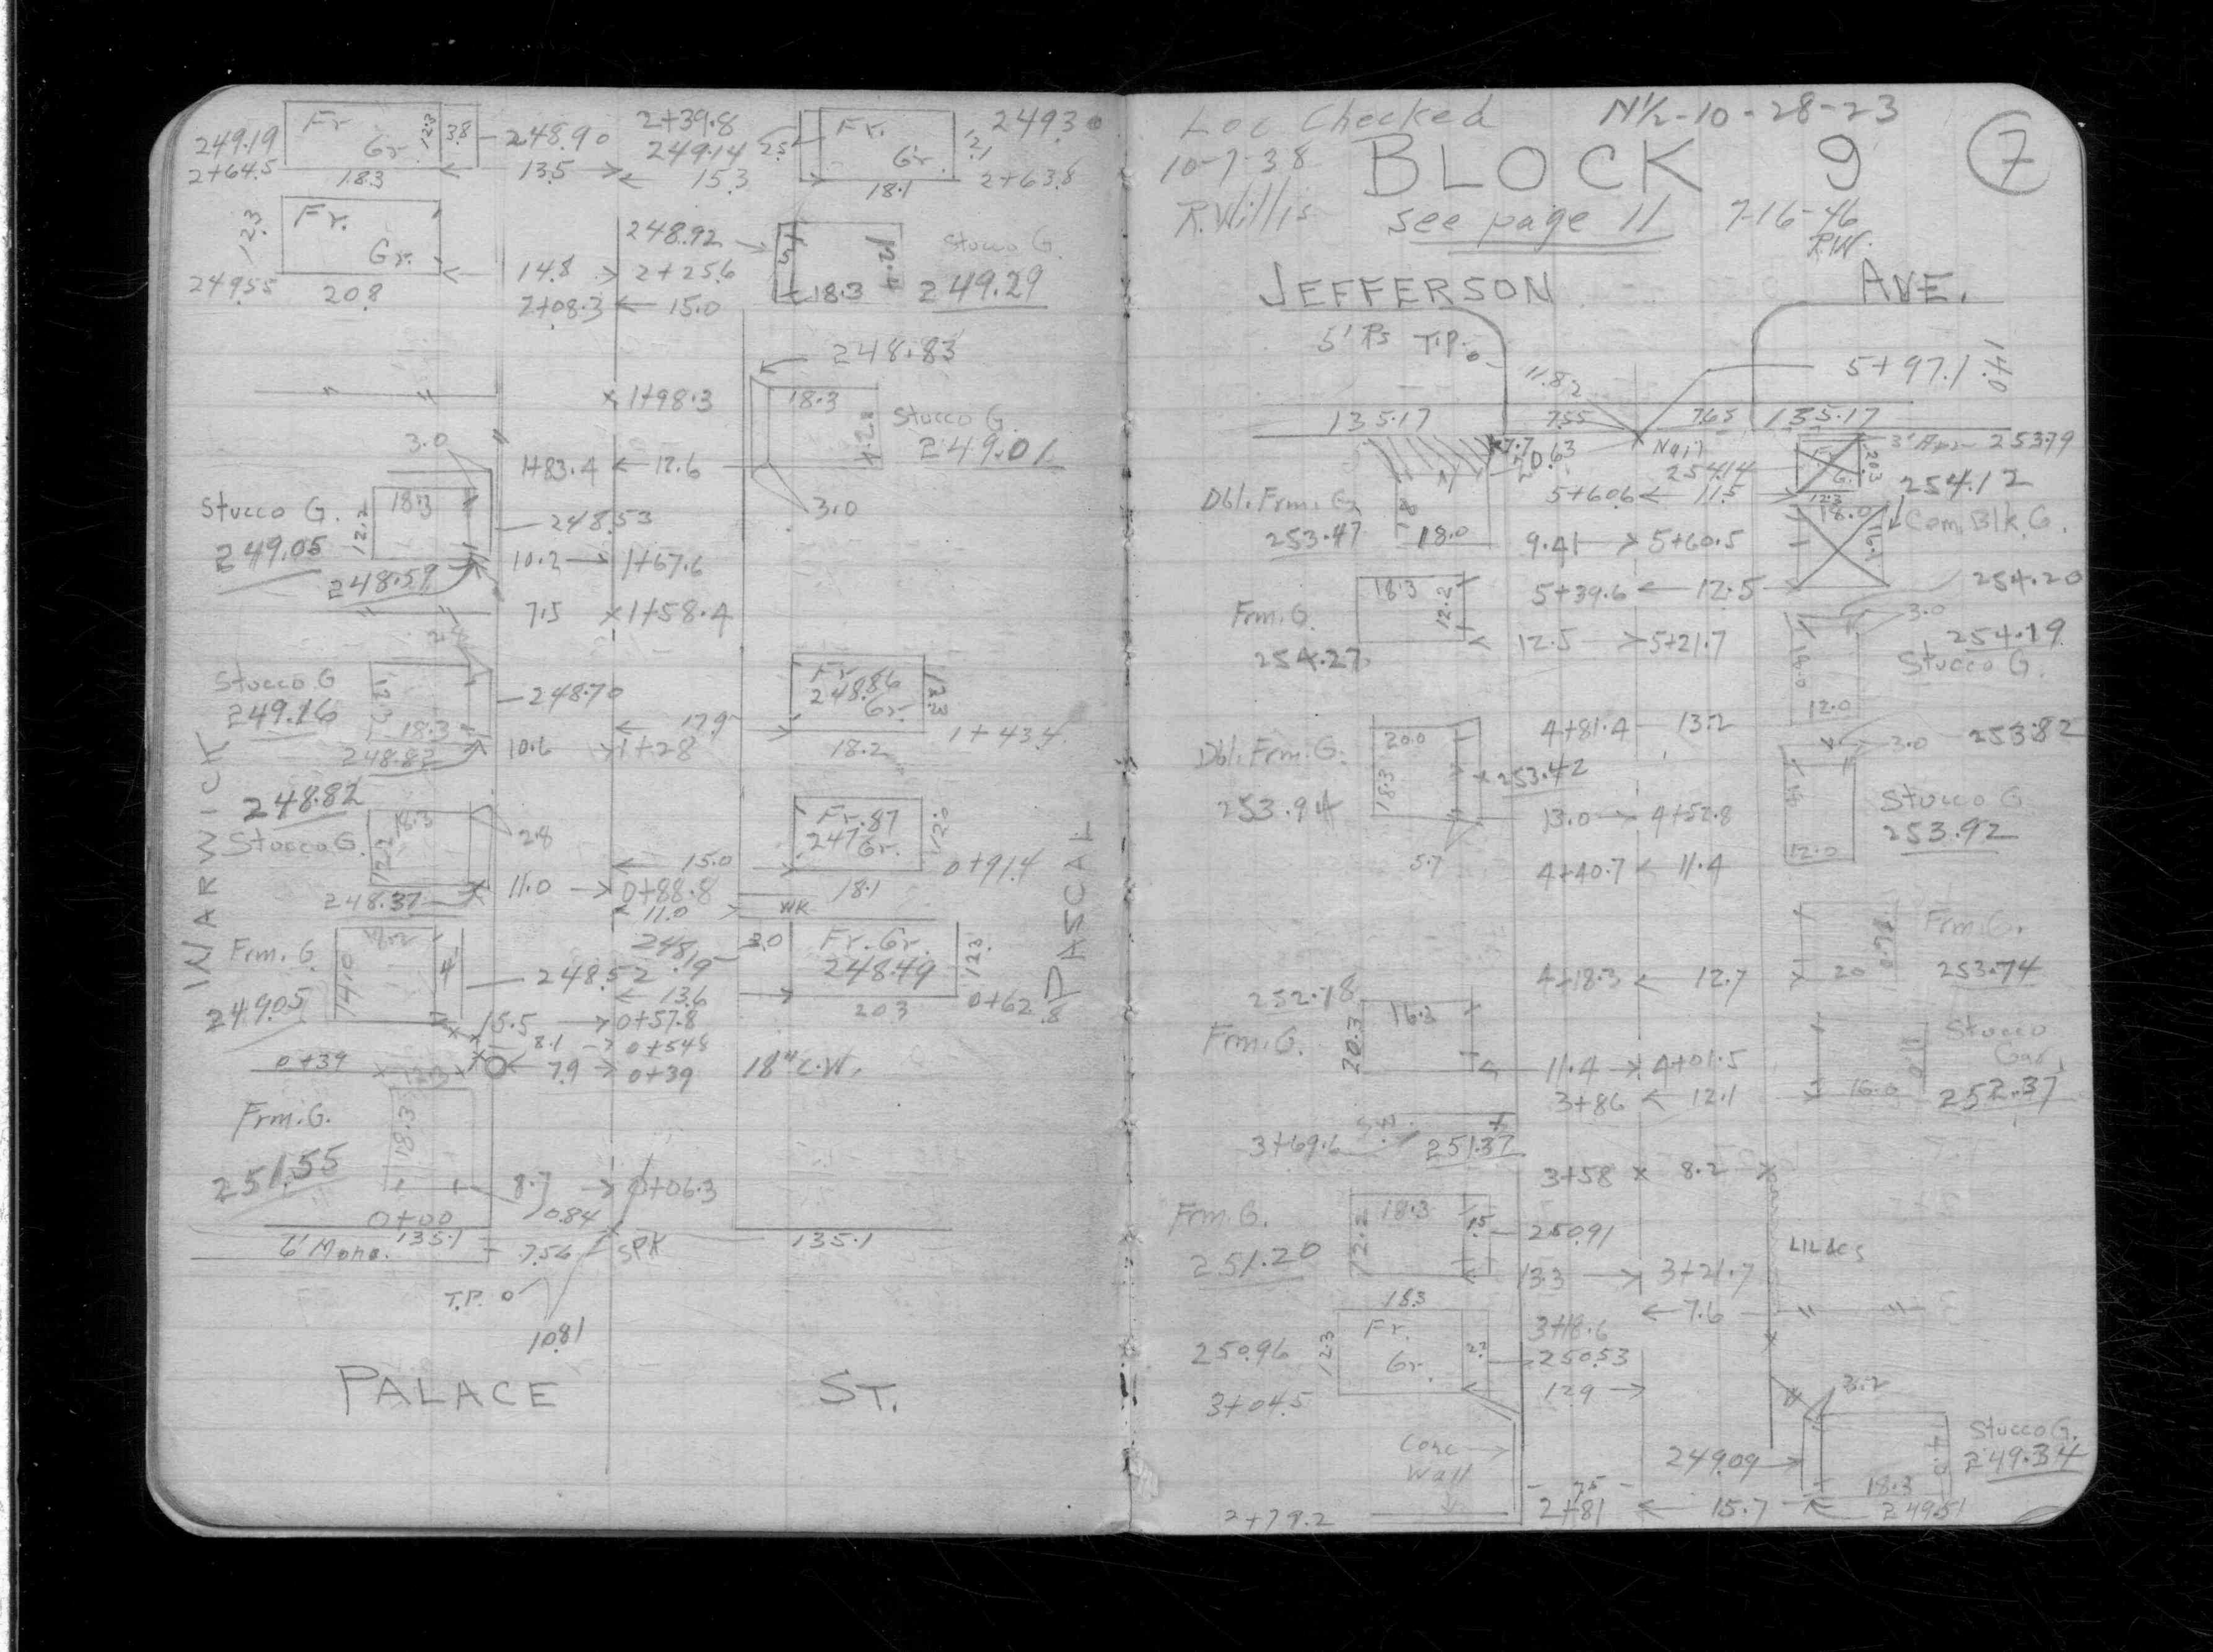 249.19 Fr Gr. 12.3 3.8 248.90 2+39.8 249.14 2.5 Fr. Gr. 12.1 249.30
2+64.5 18.3 13.5 15.3 18.1 2+63.8
12.3 Fr. Gr. 248.92 Stucco G.
249.55 20.8 14.8 2+25.6 18.3 249.29
2+08.3 15.0
248.83
1+98.3 18.3 Stucco G.
249.01
3.0 1+83.4 12.6
3.0
Stucco G. 12.2 18.3 248.53
249.05 10.2 1+67.6
248.59
7.5 1+58.4
Stucco G 248.70 Fr. 248.86 Gr. 12.3
249.16 18.3 17.9 1+43.4
248.82 10.6 1+28 18.2
248.82
Stucco G. 12.2 18.3 2.8 Fr. 247.87 Gr. 12.0
15.0 0+91.4
11.0 0+88.8 18.1
248.37 11.0 WK
Frm. G. 14.0 4' 248.52 248.19 3.0 Fr. Gr. 248.49 12.3
249.05 13.6 20.3 0+62.8
15.5 0+57.8
8.1 0+54.8
0+39 7.9 0+39 18" C.W.
Frm. G. 18.3
251.55 8.7 0+06.3
0+00 10.84
6' Mono. 135.1 7.56 SPK 135.1
T.P.
10.81
WARWICK
PASCAL
PALACE ST.
Loc Checked N½-10-28-23
10-7-38 BLOCK 9 7
R. Willis see page 11 7-16-46
R.W.
JEFFERSON AVE.
5' Rs T.P. 11.82 5+97.1 14.0
135.17 7.55 7.65 135.17
7.7 10.63 Nail 254.14 20.3 253.79
Dbl. Frm. G. 5+60.6 11.5 12.3 254.12
253.47 18.0 9.41 5+60.5 18.0 16.1 Cem. Blk. G.
18.3 12.2 5+39.6 12.5 254.20
Frm. G. 12.5 5+21.7 3.0 254.19
254.27 18.0 Stucco G.
12.0
Dbl. Frm. G. 20.0 18.3 4+81.4 13.2 3.0 253.82
253.42
253.94 13.0 4+52.8 18 Stucco G
253.92
5.7 4+40.7 11.4 12.0
Frm. G.
252.18 4+18.3 12.7 20 16.0 253.74
Frm. G. 20.3 16.3 Stucco Gar.
11.4 4+01.5
3+86 12.1 16.0 252.37
3+69.6 251.37
3+58 8.2
Frm. G. 12.2 18.3 1.5 250.91 LILACS
251.20 13.3 3+21.7
18.3 7.6
250.96 12.3 Fr. Gr. 2.2 3+18.6
250.53
3+04.5 12.9 3.2
Conc Wall 249.09 Stucco G.
249.34
7.5 18.3
2+79.2 2+81 15.7 249.51